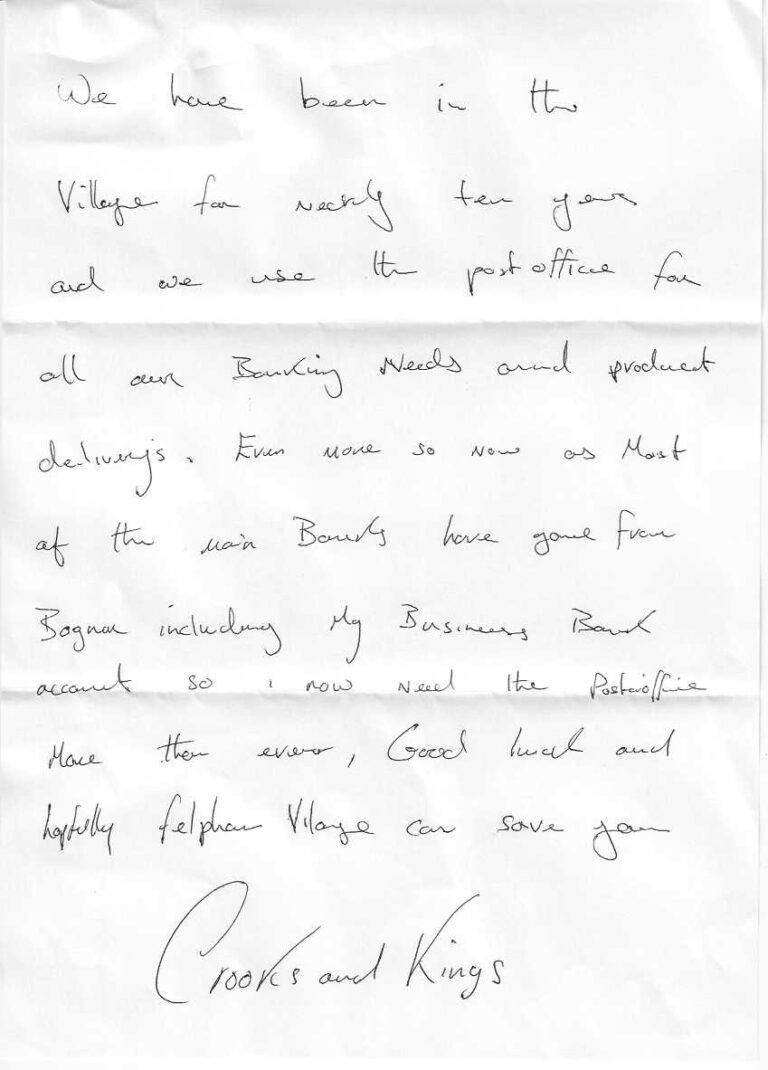 We have been in the
Village for nearly ten years
and we use the post office for
all our Banking Needs and product
delivery's. Even more so now as Most
of the main Banks have gone from
Bognor including My Business Bank
account so i now need the Postoffice
More then ever, Good luck and
hopfully felpham Vilage can save you
Crooks and Kings